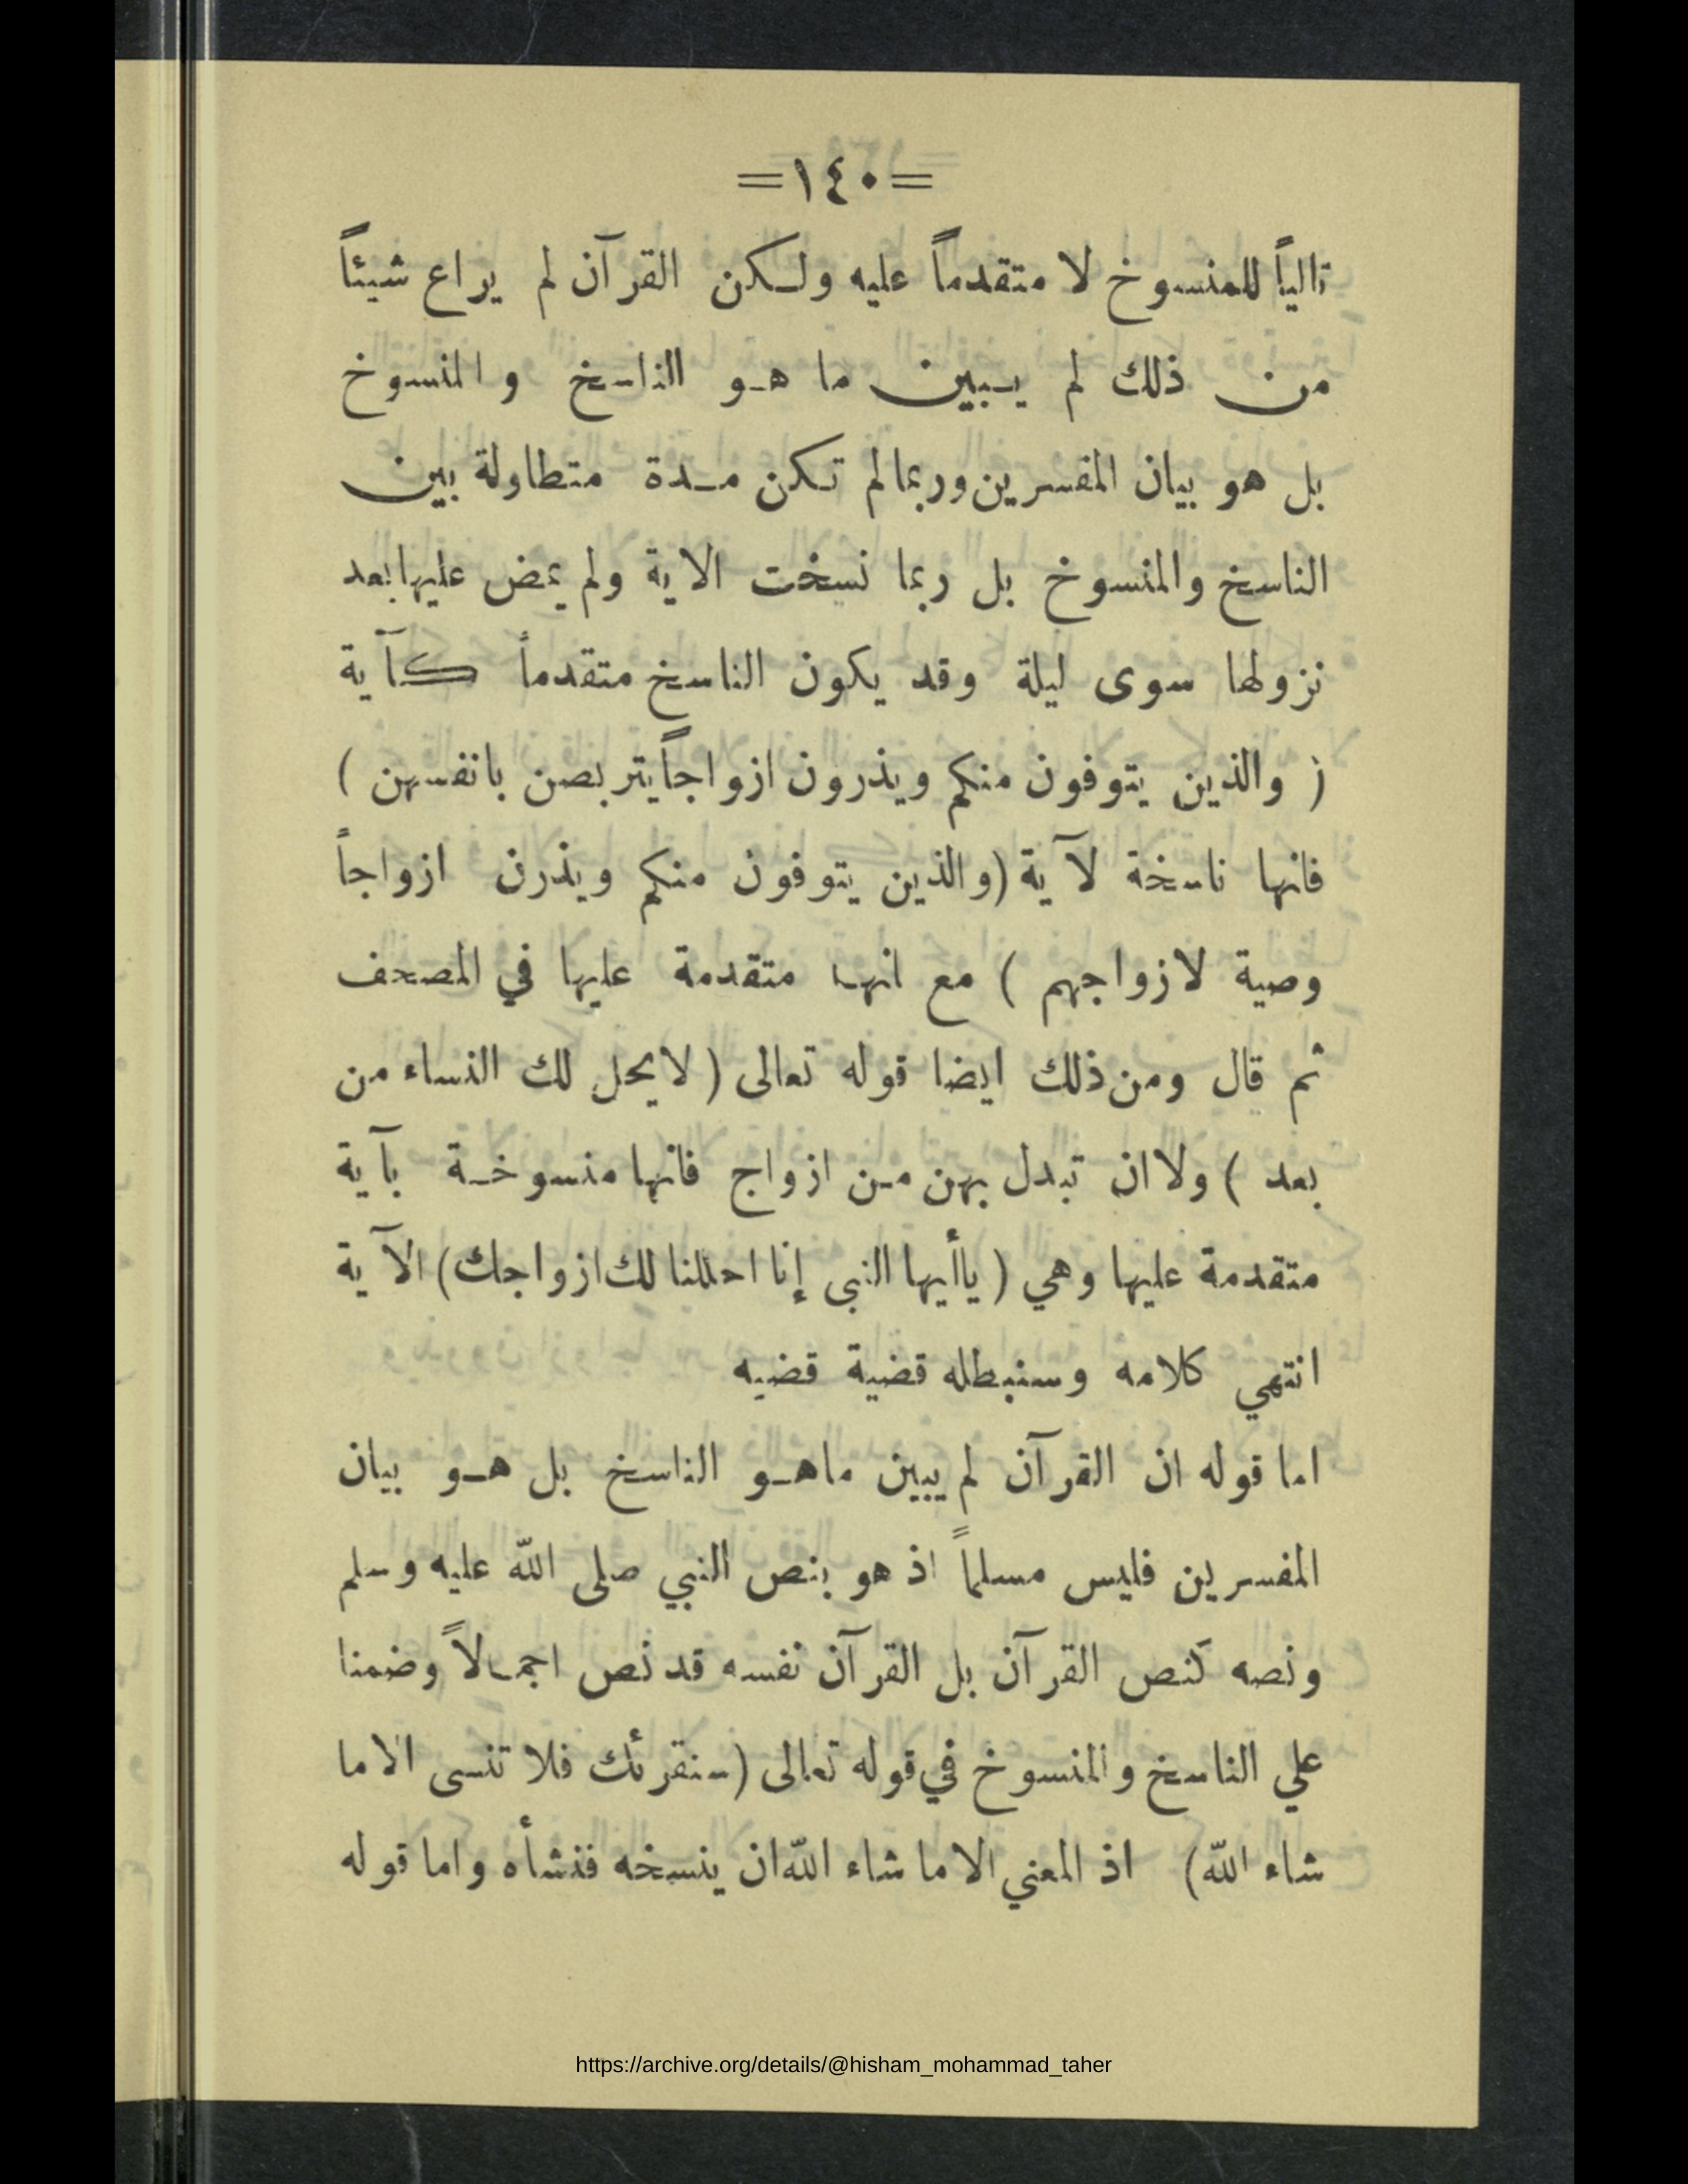 =١٤٠=
تالياً للمنسوخ لا متقدماً عليه ولكن القرآن لم يراع شيئاً
من ذلك لم يبين ما هو الناسخ والمنسوخ
بل هو بيان المفسرين وربما لم تكن مدة متطاولة بين
الناسخ والمنسوخ بل ربما نسخت الاية ولم يمض عليها بعد
نزولها سوى ليلة وقد يكون الناسخ متقدماً كآية
( والذين يتوفون منكم ويذرون ازواجاً يتربصن بانفسهن )
فانها ناسخة لآية (والذين يتوفون منكم ويذرن ازواجاً
وصية لازواجهم ) مع انها متقدمة عليها في المصحف
ثم قال ومن ذلك ايضا قوله تعالى ( لا يحل لك النساء من
بعد ) ولا ان تبدل بهن من ازواج فانها منسوخة بآية
متقدمة عليها وهي ( ياأيها النبى إنا احللنا لك ازواجك) الآية
انتهي كلامه وسنبطله قضية قضيه
اما قوله ان القرآن لم يبين ماهو الناسخ بل هو بيان
المفسرين فليس مسلماً اذ هو بنص النبي صلى الله عليه وسلم
ونصه كنص القرآن بل القرآن نفسه قد نص اجمالاً وضمنا
علي الناسخ والمنسوخ في قوله تعالى (سنقرئك فلا تنسى الا ما
شاء الله) اذ المعني الا ما شاء الله ان ينسخه فنشأه واما قوله
https://archive.org/details/@hisham_mohammad_taher